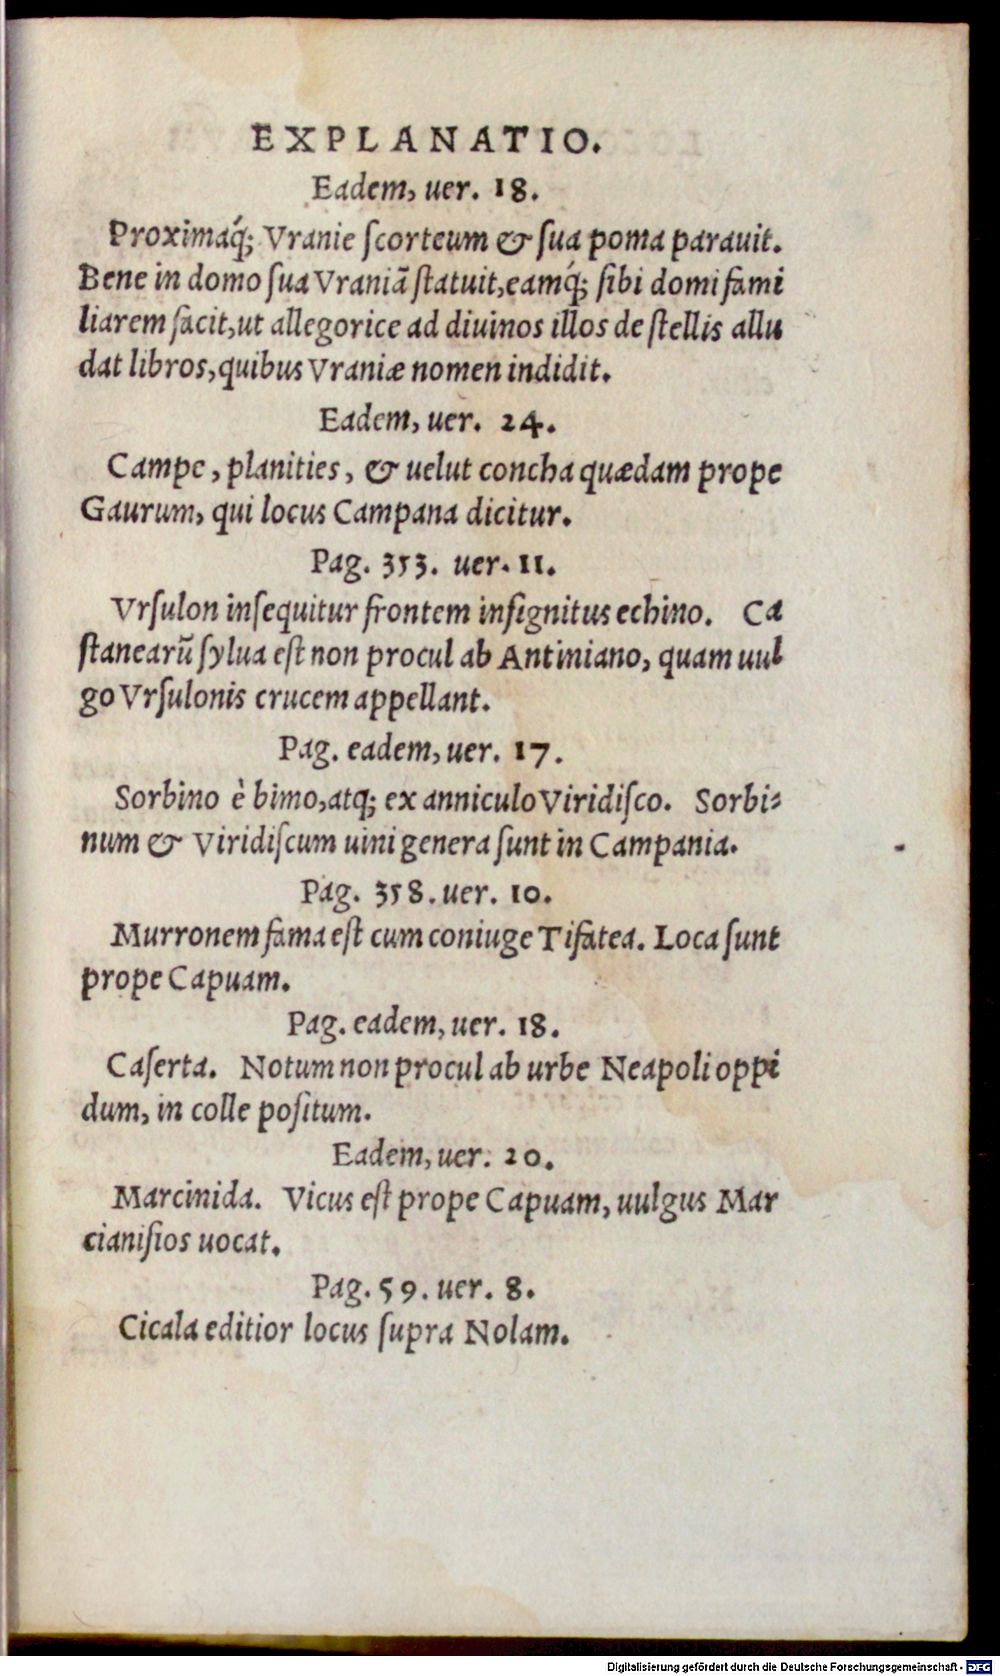 EXPLANATIO.
Eadem, uer. 18.
Proximaq́; Vranie ſcorteum & ſua poma parauit.
Bene in domo ſua Vraniã ſtatuit, eamq́; ſibi domi fami
liarem facit, ut allegorice ad diuinos illos de ſtellis allu
dat libros, quibus Vraniæ nomen indidit.
Eadem, uer. 24.
Campe, planities, & uelut concha quædam prope
Gaurum, qui locus Campana dicitur.
Pag. 353. uer. 11.
Vrſulon inſequitur frontem inſignitus echino. Ca
ſtanearũ ſylua eſt non procul ab Antiniano, quam uul
go Vrſulonis crucem appellant.
Pag. eadem, uer. 17.
Sorbino è bimo, atq; ex anniculo Viridiſco. Sorbi⸗
num & Viridiſcum uini genera ſunt in Campania.
Pag. 358. uer. 10.
Murronem fama eſt cum coniuge Tifatea. Loca ſunt
prope Capuam.
Pag. eadem, uer. 18.
Caſerta. Notum non procul ab urbe Neapoli oppi
dum, in colle poſitum.
Eadem, uer. 20.
Marcinida. Vicus eſt prope Capuam, uulgus Mar
cianiſios uocat.
Pag. 59. uer. 8.
Cicala editior locus ſupra Nolam.
Digitalisierung gefördert durch die Deutsche Forschungsgemeinschaft - DFG